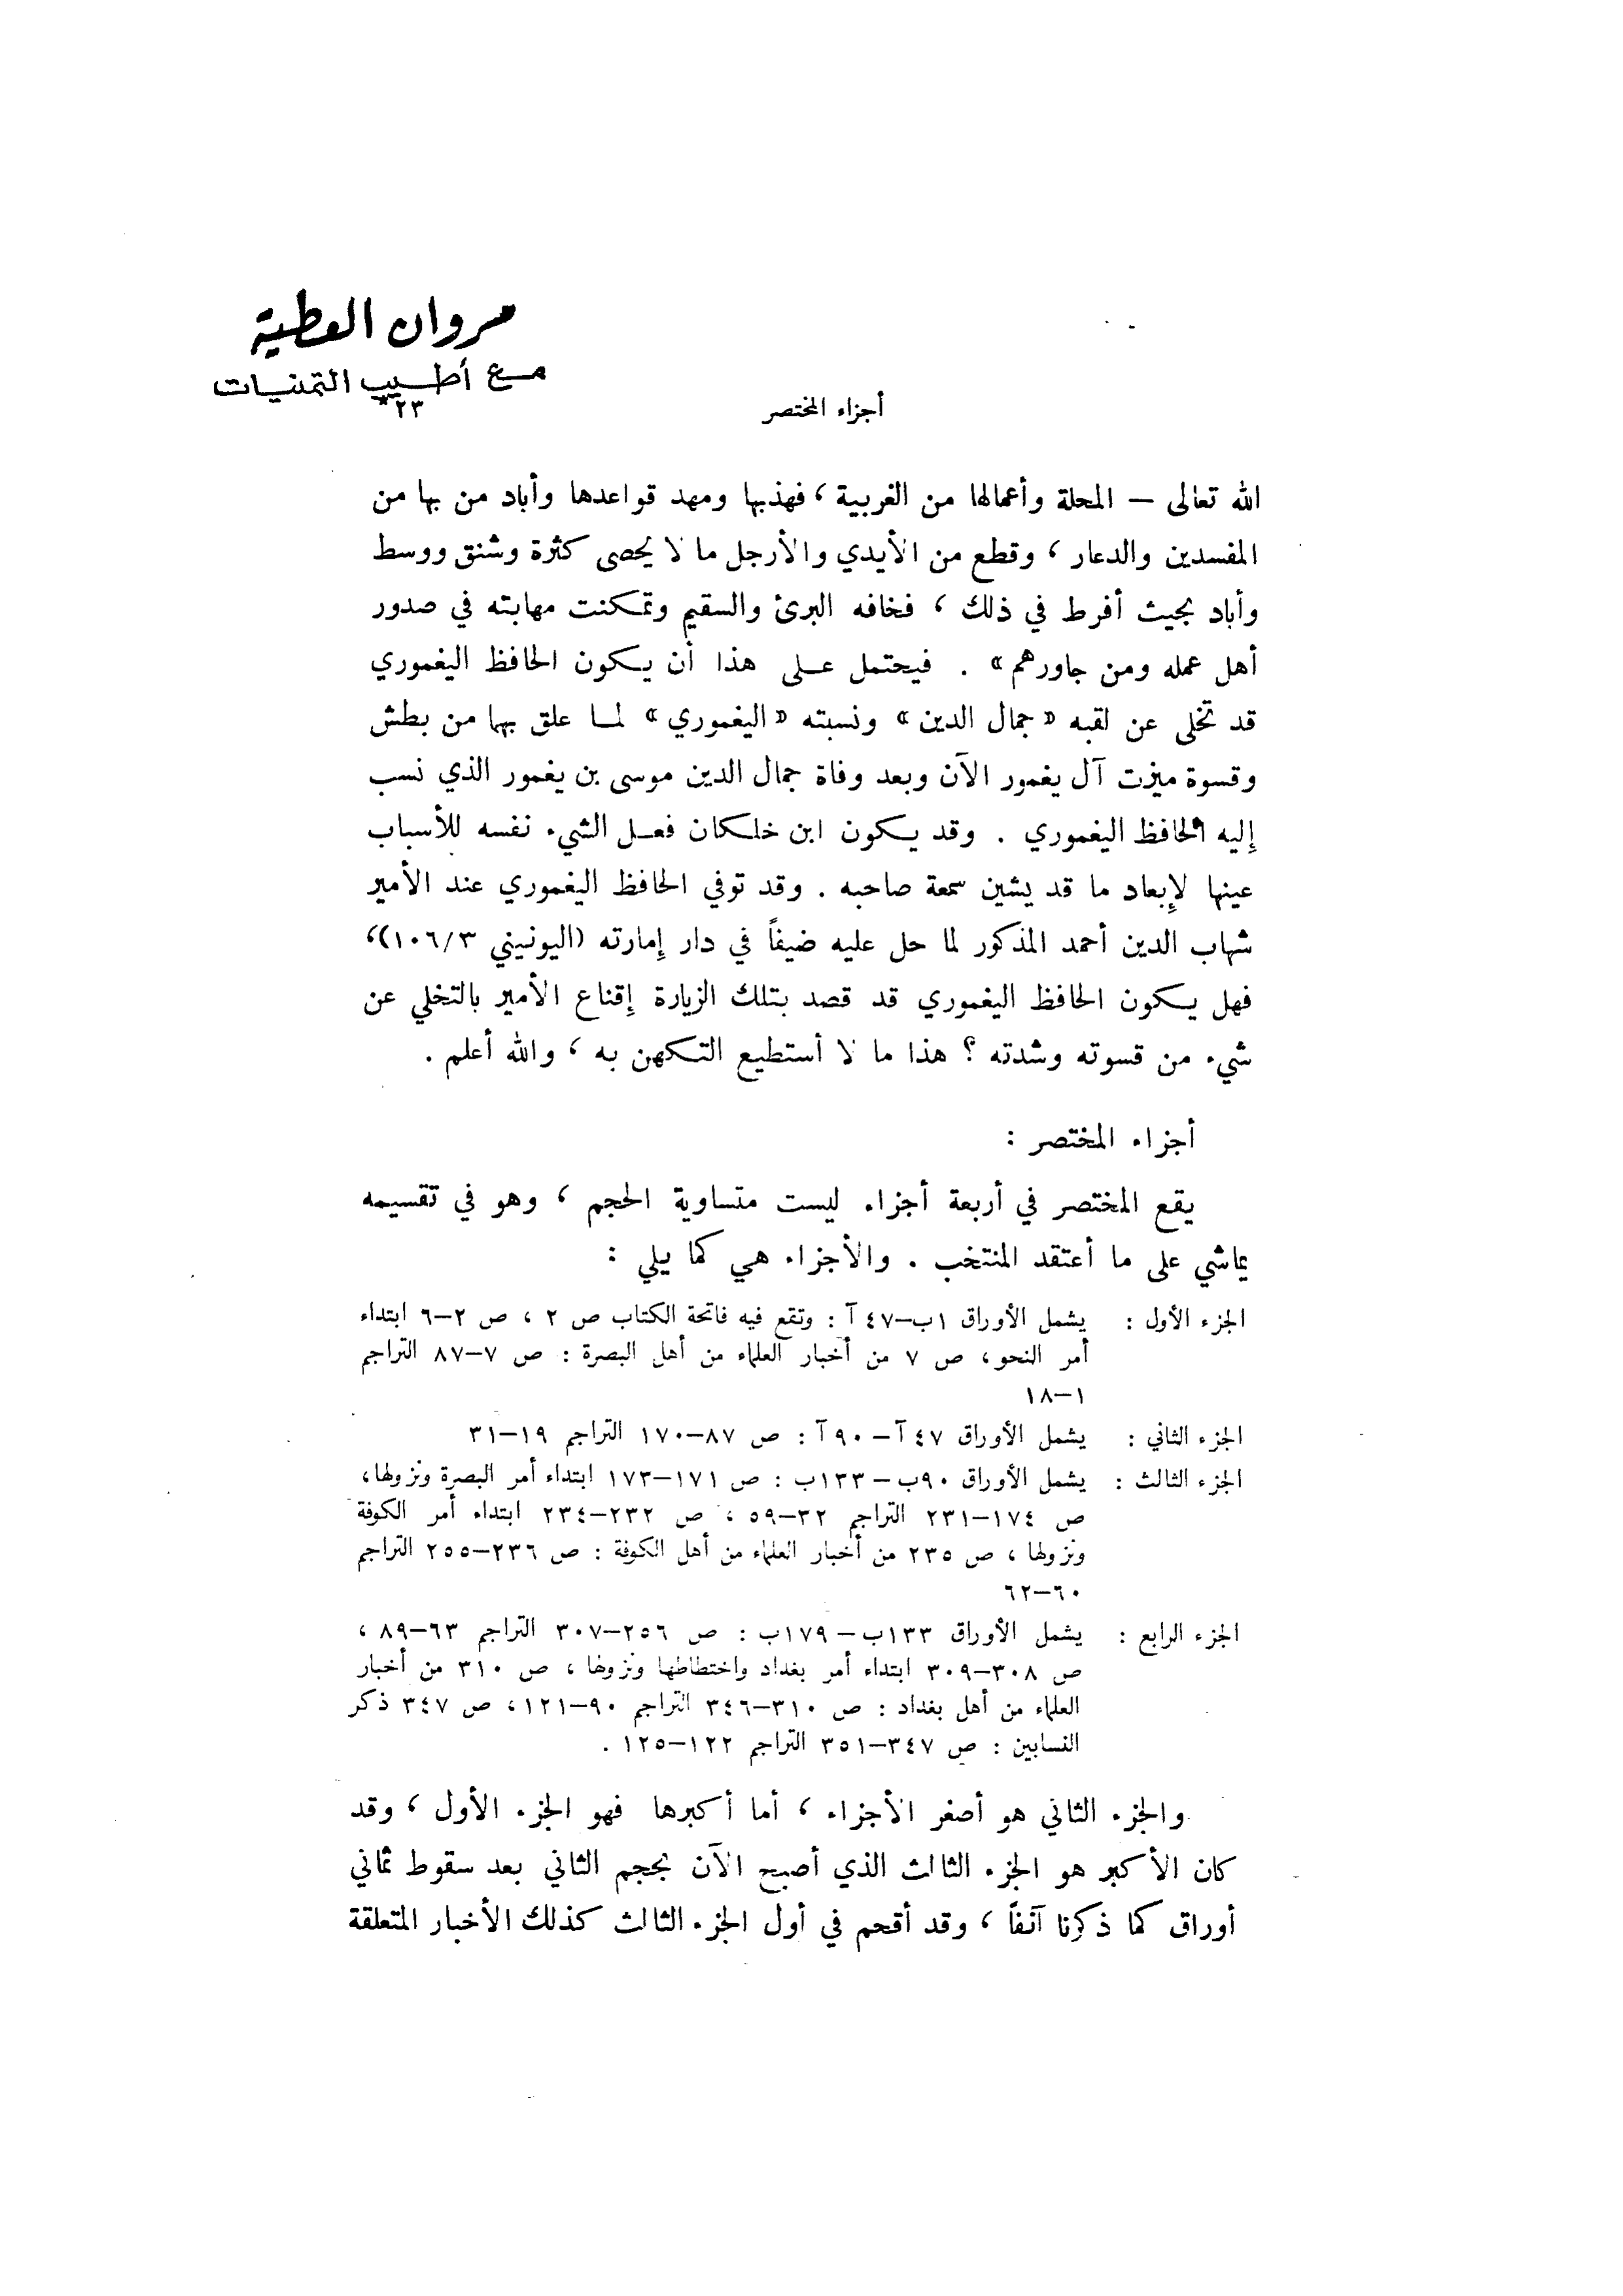 مروان العطية
مع أطيب التمنيات
أجزاء المختصر
٢٣*
الله تعالى — المحلة وأعمالها من الغربية ، فهذبها ومهد قواعدها وأباد من بها من
المفسدين والدعار ، وقطع من الأيدي والأرجل ما لا يحصى كثرة وشنق ووسط
وأباد بحيث أفرط في ذلك ، فخافه البرئ والسقيم وتمكنت مهابته في صدور
أهل عمله ومن جاورهم» . فيحتمل على هذا أن يكون الحافظ اليغموري
قد تخلى عن لقبه « جمال الدين» ونسبته «اليغموري» لما علق بها من بطش
وقسوة ميزت آل يغمور الآن وبعد وفاة جمال الدين موسى بن يغمور الذي نسب
إليه الحافظ اليغموري . وقد يكون ابن خلكان فعل الشيء نفسه للأسباب
عينها لإبعاد ما قد يشين سمعة صاحبه . وقد توفي الحافظ اليغموري عند الأمير
شهاب الدين أحمد المذكور لما حل عليه ضيفاً في دار إمارته (اليونيني ١٠٦/٣)،
فهل يكون الحافظ اليغموري قد قصد بتلك الزيارة إقناع الأمير بالتخلي عن
شيء من قسوته وشدته ؟ هذا ما لا أستطيع التكهن به ، والله أعلم .
أجزاء المختصر :
يقع المختصر في أربعة أجزاء ليست متساوية الحجم ، وهو في تقسيمه
يماشي على ما أعتقد المنتخب . والأجزاء هي كما يلي :
الجزء الأول : يشمل الأوراق ١ب–٤٧آ : وتقع فيه فاتحة الكتاب ص ٢ ، ص ٢–٦ ابتداء
أمر النحو، ص ٧ من أخبار العلماء من أهل البصرة : ص ٧–٨٧ التراجم
١–١٨
الجزء الثاني : يشمل الأوراق ٤٧آ – ٩٠آ : ص ٨٧–١٧٠ التراجم ١٩–٣١
الجزء الثالث : يشمل الأوراق ٩٠ب – ١٣٣ب : ص ١٧١–١٧٣ ابتداء أمر البصرة ونزولها،
ص ١٧٤–٢٣١ التراجم ٣٢–٥٩ ، ص ٢٣٢–٢٣٤ ابتداء أمر الكوفة
ونزولها ، ص ٢٣٥ من أخبار العلماء من أهل الكوفة : ص ٢٣٦–٢٥٥ التراجم
٦٠–٦٢
الجزء الرابع : يشمل الأوراق ١٣٣ب – ١٧٩ب : ص ٢٥٦–٣٠٧ التراجم ٦٣–٨٩ ،
ص ٣٠٨–٣٠٩ ابتداء أمر بغداد واختطاطها ونزولها ، ص ٣١٠ من أخبار
العلماء من أهل بغداد : ص ٣١٠–٣٤٦ التراجم ٩٠–١٢١ ، ص ٣٤٧ ذكر
النسابين : ص ٣٤٧–٣٥١ التراجم ١٢٢–١٢٥ .
والجزء الثاني هو أصغر الأجزاء ، أما أكبرها فهو الجزء الأول ، وقد
كان الأكبر هو الجزء الثالث الذي أصبح الآن بحجم الثاني بعد سقوط ثماني
أوراق كما ذكرنا آنفاً ، وقد أقحم في أول الجزء الثالث كذلك الأخبار المتعلقة